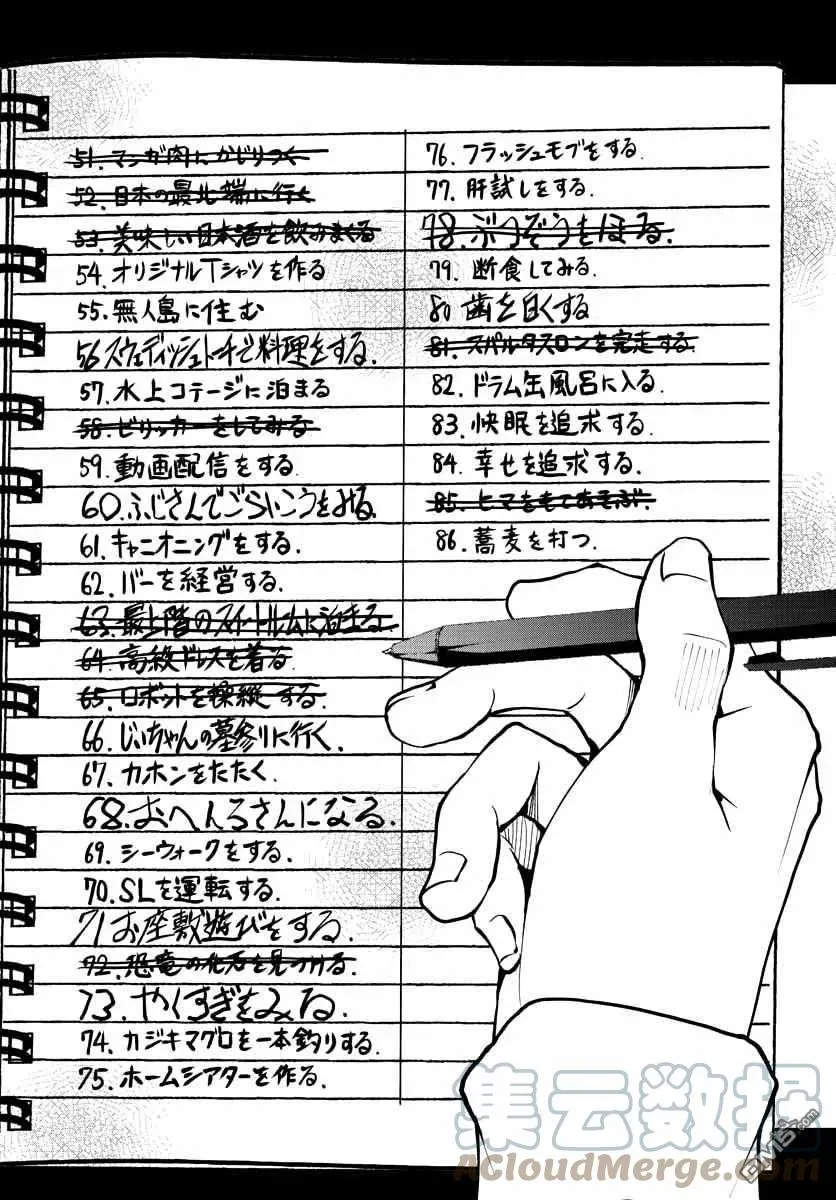 51. マンガ肉にかじりつく
52. 日本の最北端に行く
53. 美味しい日本酒を飲みまくる
54. オリジナルTシャツを作る
55. 無人島に住む
56 スウェディッシュトーチで料理をする.
57. 水上コテージに泊まる
58. ビリッカーをしてみる
59. 動画配信をする.
60.ふじさんでごらいこうをみる.
61. キャニオニングをする.
62. バーを経営する.
63. 最上階のスイートルームに泊まる
64. 高級ドレスを着る
65. ロボットを操縦する.
66. じいちゃんの墓参りに行く.
67. カホンをたたく.
68.おへんろさんになる.
69. シーウォークをする.
70. SLを運転する.
71 お座敷遊びをする.
72. 恐竜の化石を見つける.
73. やくすぎをみる.
74. カジキマグロを一本釣りする.
75. ホームシアターを作る.
76. フラッシュモブをする.
77. 肝試しをする.
78.ぶつぞうをほる.
79. 断食してみる.
80 歯を白くする
81. スパルタスロンを完走する
82. ドラム缶風呂に入る.
83. 快眠を追求する.
84. 幸せを追求する.
85. ヒマをもてあそぶ.
86. 蕎麦を打つ.
集云数据
ACloudMerge.com